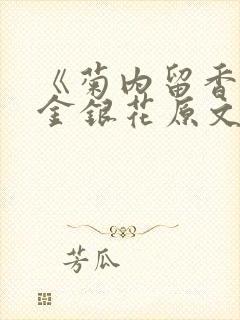 《菊内留香
金银花原文
芳瓜